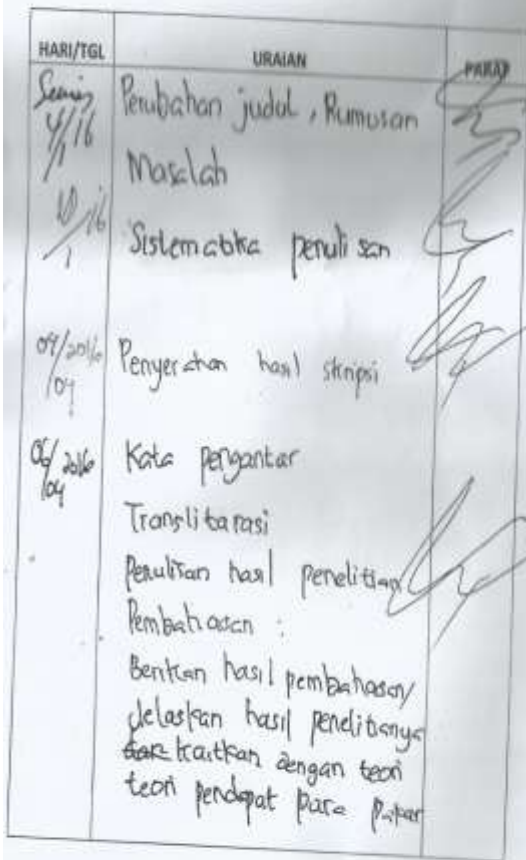 HARI/TGL URAIAN PARAF
Senin Perubahan judul, Rumusan
4/16 Masalah
1
16 Sistematika penulisan
1
04/2016 Penyerahan hasil skripsi
04
06/2016 Kata pengantar
04
Translitarasi
Penulisan hasil penelitian
Pembahasan :
Berikan hasil pembahasan/
jelaskan hasil penelitianya
kaitkan dengan teori
teori pendapat para pakar